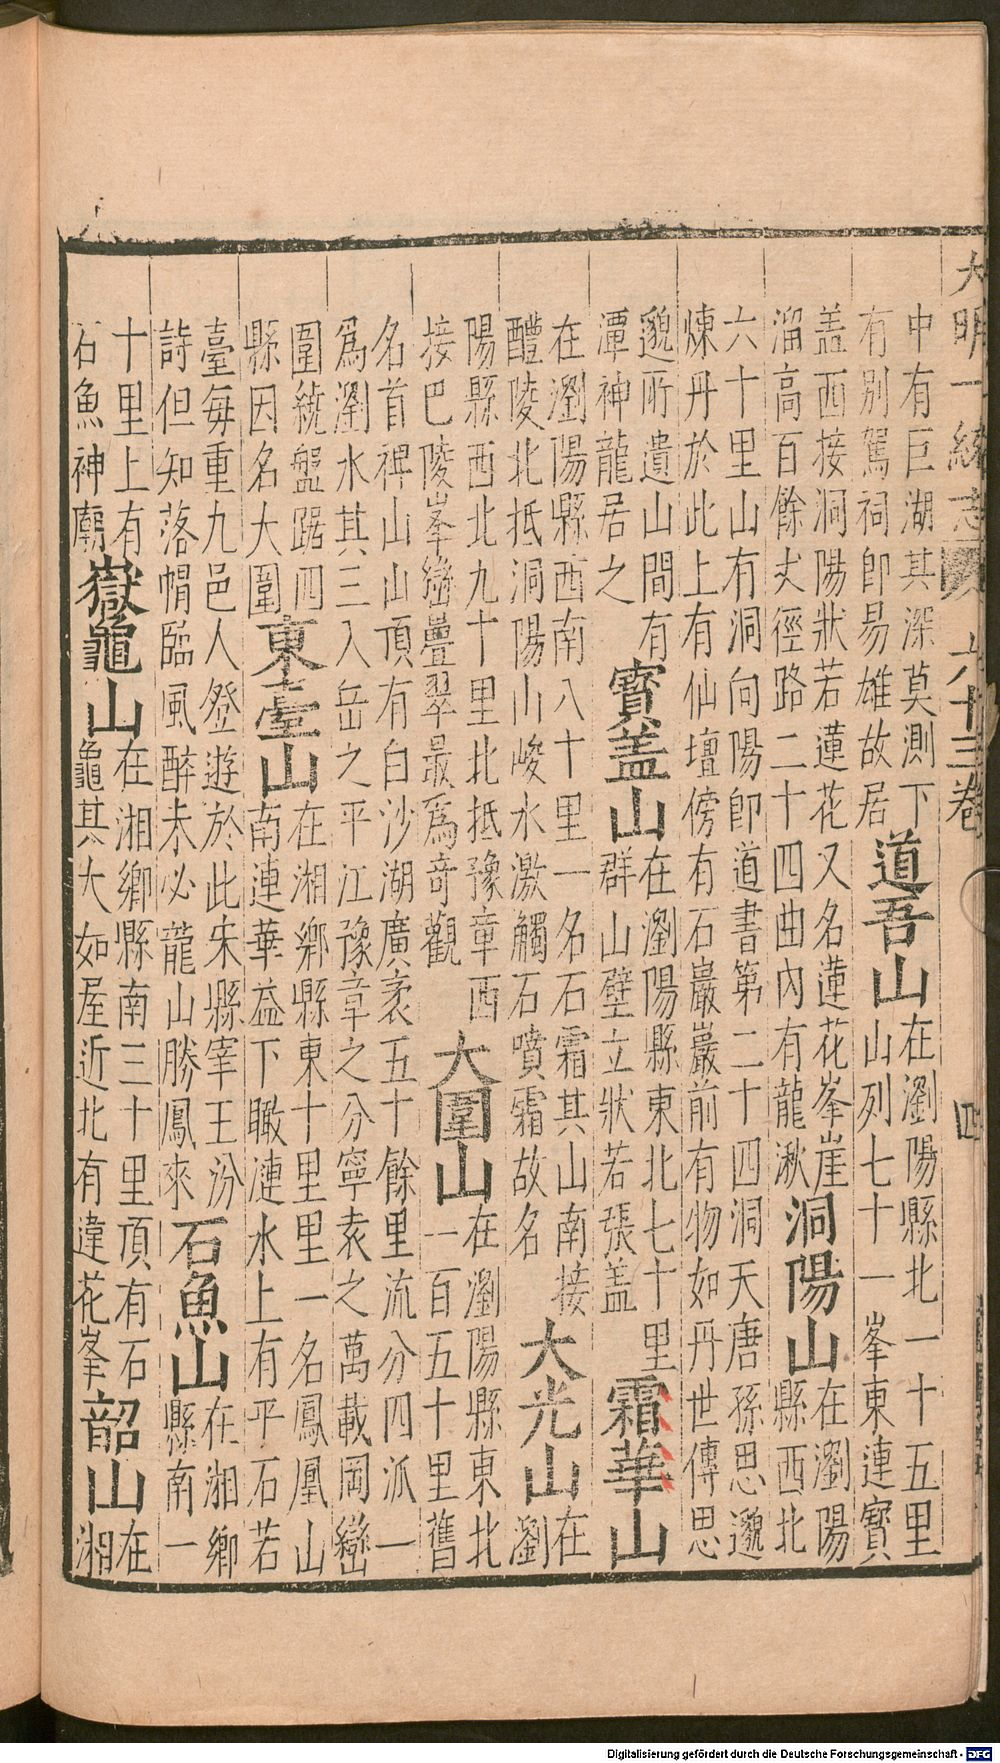 大明一統志 六十三卷 四
中有巨湖其深莫測下
有別駕祠即易雄故居
道吾山
在瀏陽縣北一十五里
山列七十一峯東連寳
盖西接洞陽狀若蓮花又名蓮花峯崖
溜高百餘丈徑路二十四曲內有龍湫
洞陽山
在瀏陽
縣西北
六十里山有洞向陽即道書第二十四洞天唐孫思邈
煉丹於此上有仙壇傍有石巖巖前有物如丹世傳思
邈所遺山間有
潭神龍居之
寳盖山
在瀏陽縣東北七十里
群山壁立狀若張盖
霜華山
在瀏陽縣西南八十里一名石霜其山南接
醴陵北抵洞陽山峻水激觸石噴霜故名
大光山
在
瀏
陽縣西北九十里北抵豫章西
接巴陵峯巒疊翠最爲竒觀
大圍山
在瀏陽縣東北
一百五十里舊
名首禆山山頂有白沙湖廣袤五十餘里流分四派一
爲瀏水其三入岳之平江豫章之分寧袁之萬載岡巒
圍繞盤踞四
縣因名大圍
東臺山
在湘鄉縣東十里里一名鳳凰山
南連華益下瞰漣水上有平石若
臺每重九邑人登遊於此宋縣宰王汾
詩但知落帽臨風醉未必龍山勝鳳來
石魚山
在湘鄉
縣南一
十里上有
石魚神廟
嶽龜山
在湘鄉縣南三十里頂有石
龜其大如屋近北有違花峯
韶山
在
湘
Digitalisierung gefördert durch die Deutsche Forschungsgemeinschaft - DFG